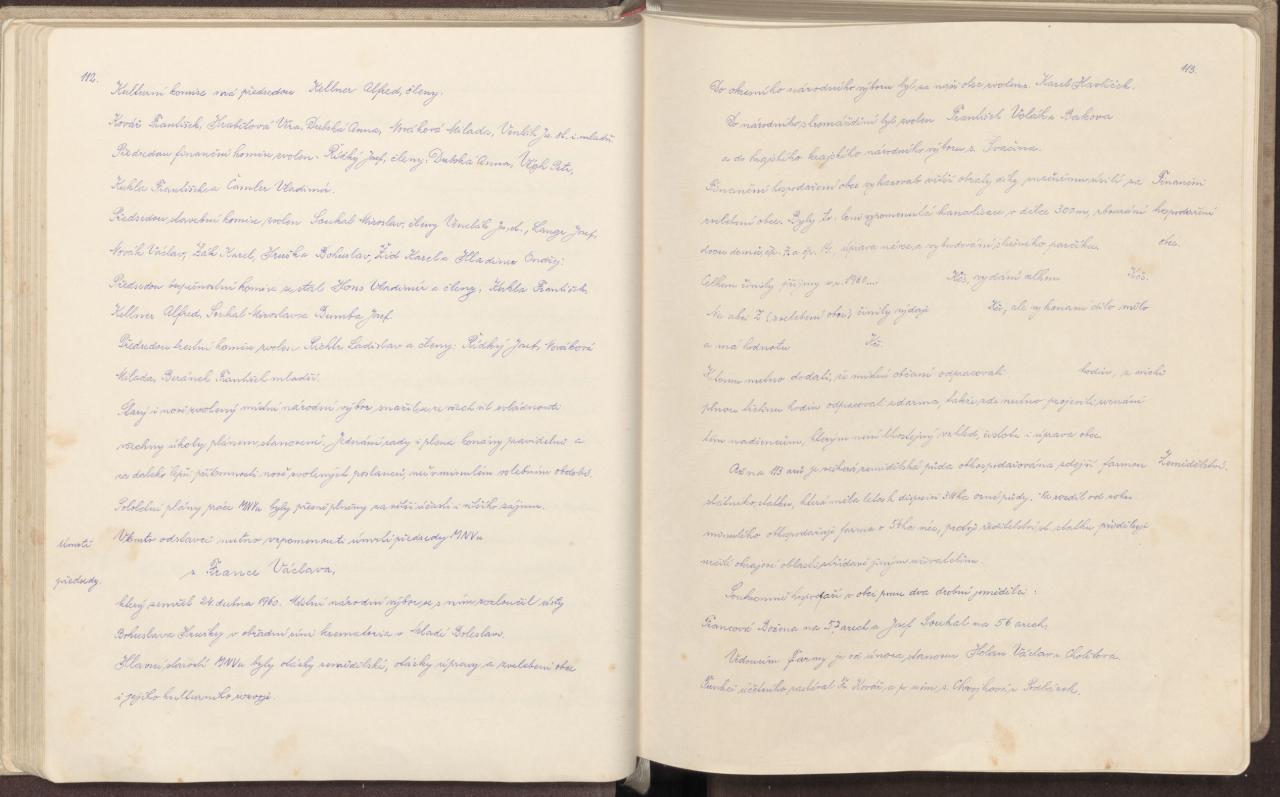 112.
Kulturní komise má předsedou Kellner Alfred, členy:
Kovář František, Hrabětová Věra, Dutská Anna, Nováková Milada, Venclík Ja. st. i mladší
Předsedou finanční komise zvolen - Řídký Josef, členy: Dutská Anna, Petr,
Kukla František a Čamler Vladimír.
Předsedou stavební komise zvolen Soukal Miroslav, členy Venclík Ja. st., Lange Josef,
Novák Václav, Žák Karel, Hruška Bohuslav, Žid Karel a Hladima Ondřej.
Předsedou bezpečnostní komise se stal Hons Vladimír a členy: Kukla František
Kellner Alfred, Soukal Miroslav a Bumba Josef
Předsedou trestní komise zvolen Richtr Ladislav a členy: Řídký Josef, Nováková
Milada, Beránek František mladší.
Starý i nově zvolený místní národní výbor snažil se ze všech sil zvládnouti
všechny úkoly plánem stanovené. Jednání rady i plena konány pravidelně a
za daleko lepší přítomnosti nově zvolených poslanců, než v minulém volebním období.
Pololetní plány práce MNVu byly přesně plněny za větší účasti i většího zájmu.
V tomto odstavci nutno vzpomenouti úmrtí předsedy MNVu
Úmrtí
s. France Václava,
předsedy.
který zemřel 24. dubna 1960. Místní národní výbor se s ním rozloučil ústy
Bohuslava Hrušky v obřadní síni krematoria v Mladé Boleslavi.
Hlavní starostí MNVu byly otázky zemědělské, otázky úpravy a zvelebení obce
i jejího kulturního rozvoje.
113.
Do okresního národního výboru byl za naši obec zvolen s. Karel Havlíček.
Do národního shromáždění byl zvolen František Voláh z Bakova
a do krajského národního výboru s. Svačina.
Finanční hospodaření obce vykazovalo větší obraty díky úsilí za Finanční
zvelebení obce. Byly to: loni vzpomenutá kanalisace, v délce 300 m, zbourání hospodaření
dvou domů, čp. 7. a čp. 14, úprava návse, a vybudování pěkného parčíku. obce.
Celkem činily příjmy v r. 1960... Kčs, vydání celkem Kčs.
Na akci Z (zvelebení obce) činily výdaje Kčs, ale vykonané dílo mělo
a má hodnotu Kčs.
K tomu nutno dodati, že místní občané odpracovali hodin, z nichž
plnou třetinu hodin odpracovali zdarma, takže zde nutno projeviti uznání
těm nadšencům, kterým není lhostejný vzhled, čistota i úprava obce.
Až na 113 arů je veškerá zemědělská půda obhospodařována zdejší farmou Zemědělství.
státního statku, která měla letos k disposici 314 ha orné půdy. Na rozdíl od roku
minulého obhospodařuje farma o 54 ha více, protože ředitelství st. statku, přiděluje
určité okrajové oblasti, střídavě jiným uživatelům.
Soukromě hospodaří v obci pouze dva drobní zemědělci:
Francová Božena na 57 arech a Josef Soukal na 56 arech.
Vedoucím farmy je od února stanoven Holan Václav z Choltova
Funkci účetního zastával Fr. Kovář, a po něm, s. Chvojková z Podlázek.